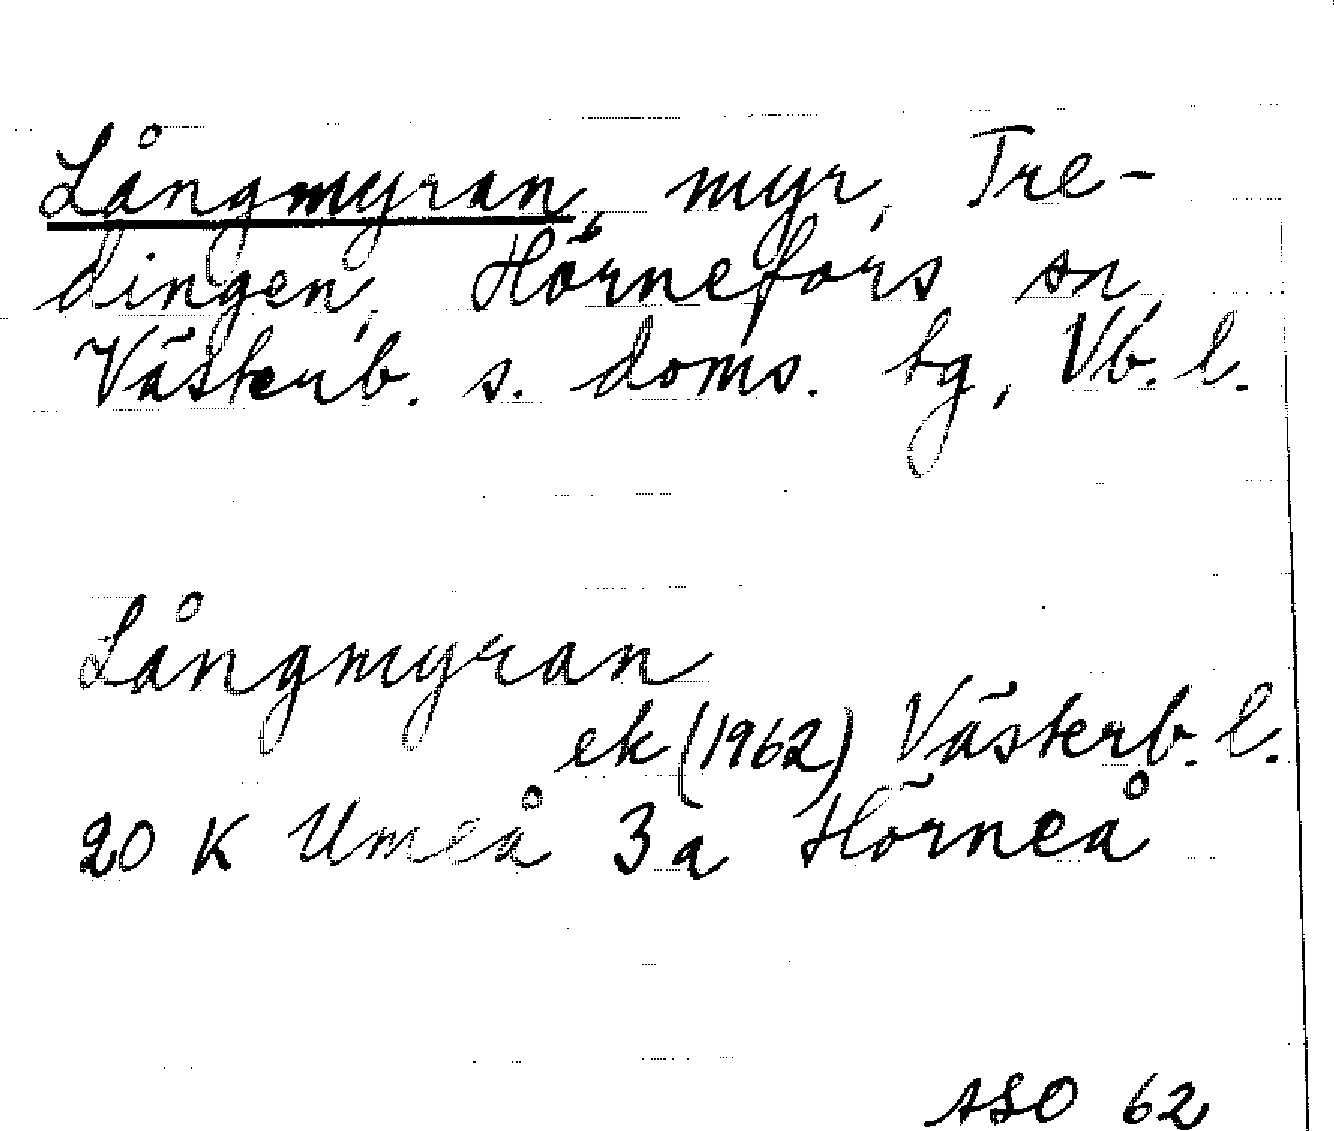 Långmyran, myr, Tre-
dingen, Hörnefors sn,
Västerb. s. doms. tg, Vb. l.
Långmyran
ek (1962) Västerb. l.
20 K Umeå 3a Hörneå
ASO 62